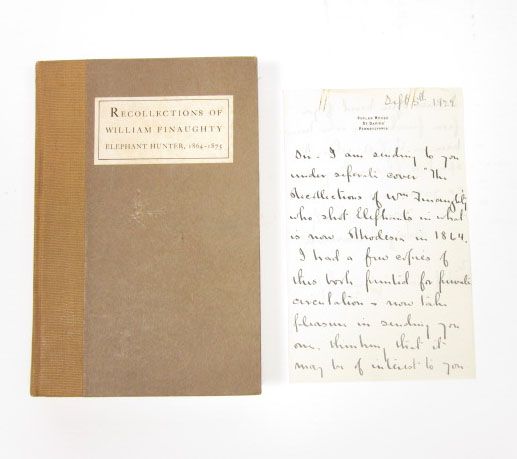 RECOLLECTIONS OF
WILLIAM FINAUGHTY
ELEPHANT HUNTER, 1864-1875
Sept 5th 1929
POPLAR HOUSE
ST DAVIDS
PENNSYLVANIA
Sir. I am sending to you
under seperate cover "The
Recollections of Wm Finaughty
who shot Elephants in what
is now Rhodesia in 1864.
I had a few copies of
this book printed for private
circulation & now take
pleasure in sending you
one, thinking that it
may be of interest to you